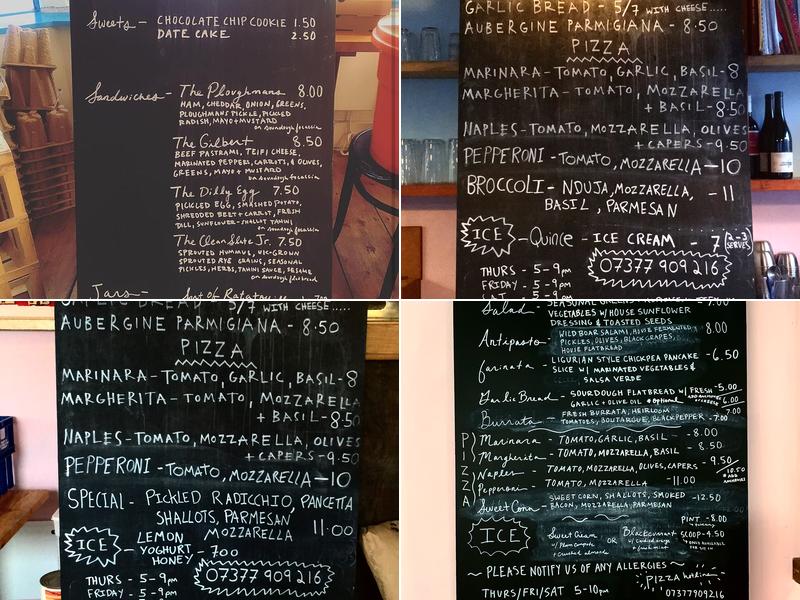 Sweets - CHOCOLATE CHIP COOKIE 1.50
DATE CAKE 2.50
Sandwiches - The Ploughmans 8.00
HAM, CHEDDAR, ONION, GREENS,
PLOUGHMANS PICKLE, PICKLED
RADISH, MAYO + MUSTARD
on sourdough focaccia
The Gilbert 8.50
BEEF PASTRAMI, TEIFI CHEESE,
MARINATED PEPPERS, CARROTS, & OLIVES,
GREENS, MAYO + MUSTARD
on sourdough focaccia
The Dilly Egg 7.50
PICKLED EGG, SMASHED POTATO,
SHREDDED BEET + CARROT, FRESH
DILL, SUNFLOWER-SHALLOT TAHINI
on sourdough focaccia
The Clean Slate Jr. 7.50
SPROUTED HUMMUS, UK-GROWN
SPROUTED RYE GRAINS, SEASONAL
PICKLES, HERBS, TAHINI SAUCE, SESAME
on sourdough flatbread
Jars -
GARLIC BREAD - 5/7 WITH CHEESE.....
AUBERGINE PARMIGIANA - 8.50
PIZZA
MARINARA - TOMATO, GARLIC, BASIL - 8
MARGHERITA - TOMATO, MOZZARELLA
+ BASIL - 8.50
NAPLES - TOMATO, MOZZARELLA, OLIVES
+ CAPERS - 9.50
PEPPERONI - TOMATO, MOZZARELLA - 10
BROCCOLI - NDUJA, MOZZARELLA, - 11
BASIL, PARMESAN
ICE - Quince - ICE CREAM - 7 (2-3 SERVES)
THURS - 5-9pm
FRIDAY - 5-9pm
07377 909 216
SAT
GARLIC BREAD - 5/7 WITH CHEESE
AUBERGINE PARMIGIANA - 8.50
PIZZA
MARINARA - TOMATO, GARLIC, BASIL - 8
MARGHERITA - TOMATO, MOZZARELLA
+ BASIL - 8.50
NAPLES - TOMATO, MOZZARELLA, OLIVES
+ CAPERS - 9.50
PEPPERONI - TOMATO, MOZZARELLA - 10
SPECIAL - PICKLED RADICCHIO, PANCETTA
SHALLOTS, PARMESAN
MOZZARELLA 11.00
ICE - LEMON
YOGHURT - 700
HONEY
THURS - 5-9pm
FRIDAY - 5-9pm
07377 909 216
Salad SEASONAL GREENS
VEGETABLES W/ HOUSE SUNFLOWER
DRESSING & TOASTED SEEDS
Antipasto WILD BOAR SALAMI, HOUSE FERMENTED
PICKLES, OLIVES, BLACK GRAPES, 8.00
HOUSE FLATBREAD
farinata - LIGURIAN STYLE CHICKPEA PANCAKE - 6.50
SLICE W/ MARINATED VEGETABLES &
SALSA VERDE
Garlic Bread - SOURDOUGH FLATBREAD W/ FRESH - 5.00
GARLIC + OLIVE OIL + optional 6.00
Burrata - FRESH BURRATA, HEIRLOOM
TOMATOES, BOUTARGUE, BLACK PEPPER - 7.00
PIZZA
Marinara - TOMATO, GARLIC, BASIL - 8.00
Margherita - TOMATO, MOZZARELLA, BASIL - 8.50
Naples - TOMATO, MOZZARELLA, OLIVES, CAPERS - 9.50
Pepperoni - TOMATO, MOZZARELLA - 11.00
Sweet Corn - SWEET CORN, SHALLOTS, SMOKED - 12.50
BACON, MOZZARELLA, PARMESAN
ICE
Sweet Cream OR Blackcurrant
PINT - 8.00
SCOOP - 4.50
~ PLEASE NOTIFY US OF ANY ALLERGIES ~
THURS/FRI/SAT 5-10pm
PIZZA hotline
07377909216